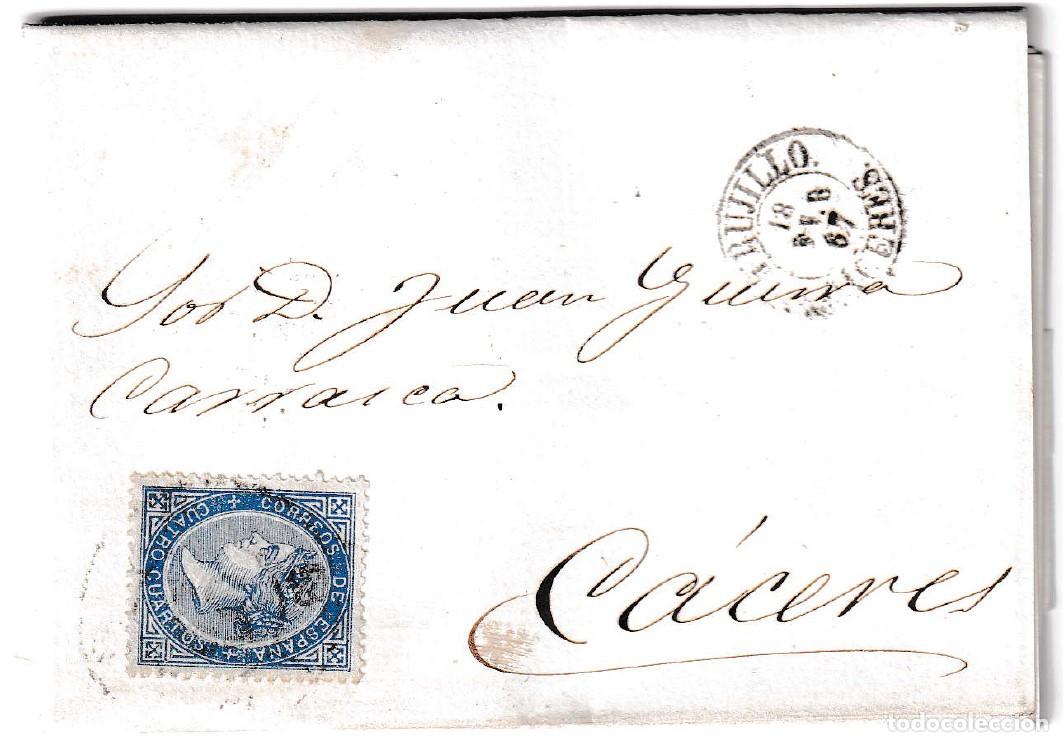 TRUJILLO. CERES
18
DIC
67
Sor D. Juan Guerra
Carrasco.
CORREOS DE ESPAÑA
CUATRO CUARTOS
Cáceres
todocoleccion